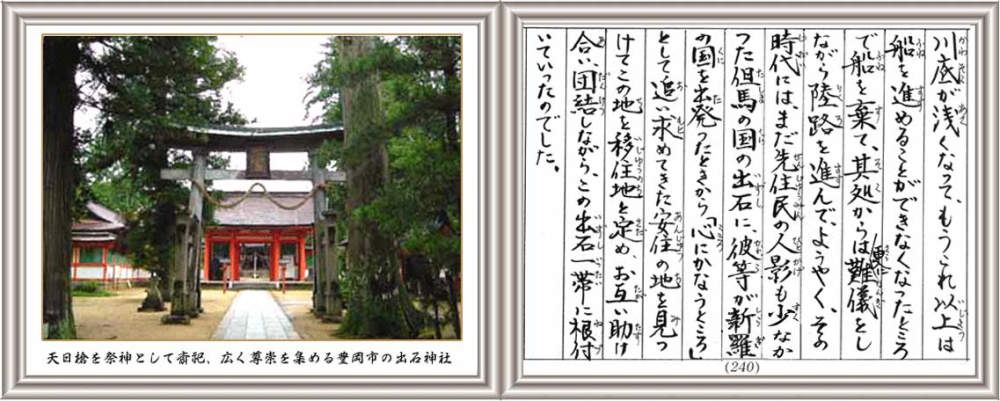 天日槍を祭神として斎祀、広く尊崇を集める豊岡市の出石神社
川底が浅くなって、もうこれ以上は
船を進めることができなくなったところ
で船を棄て、其処からは難儀をし
ながら陸路を進んで、ようやく、その
時代には、まだ先住民の人影も少なか
った但馬の国の出石に、彼等が新羅
の国を出発ったときから、「心にかなうところ」
として追い求めてきた安住の地を見つ
けてこの地を移住地と定め、お互い助け
合い、団結しながら、この出石一帯に根付
いていったのでした。
(240)